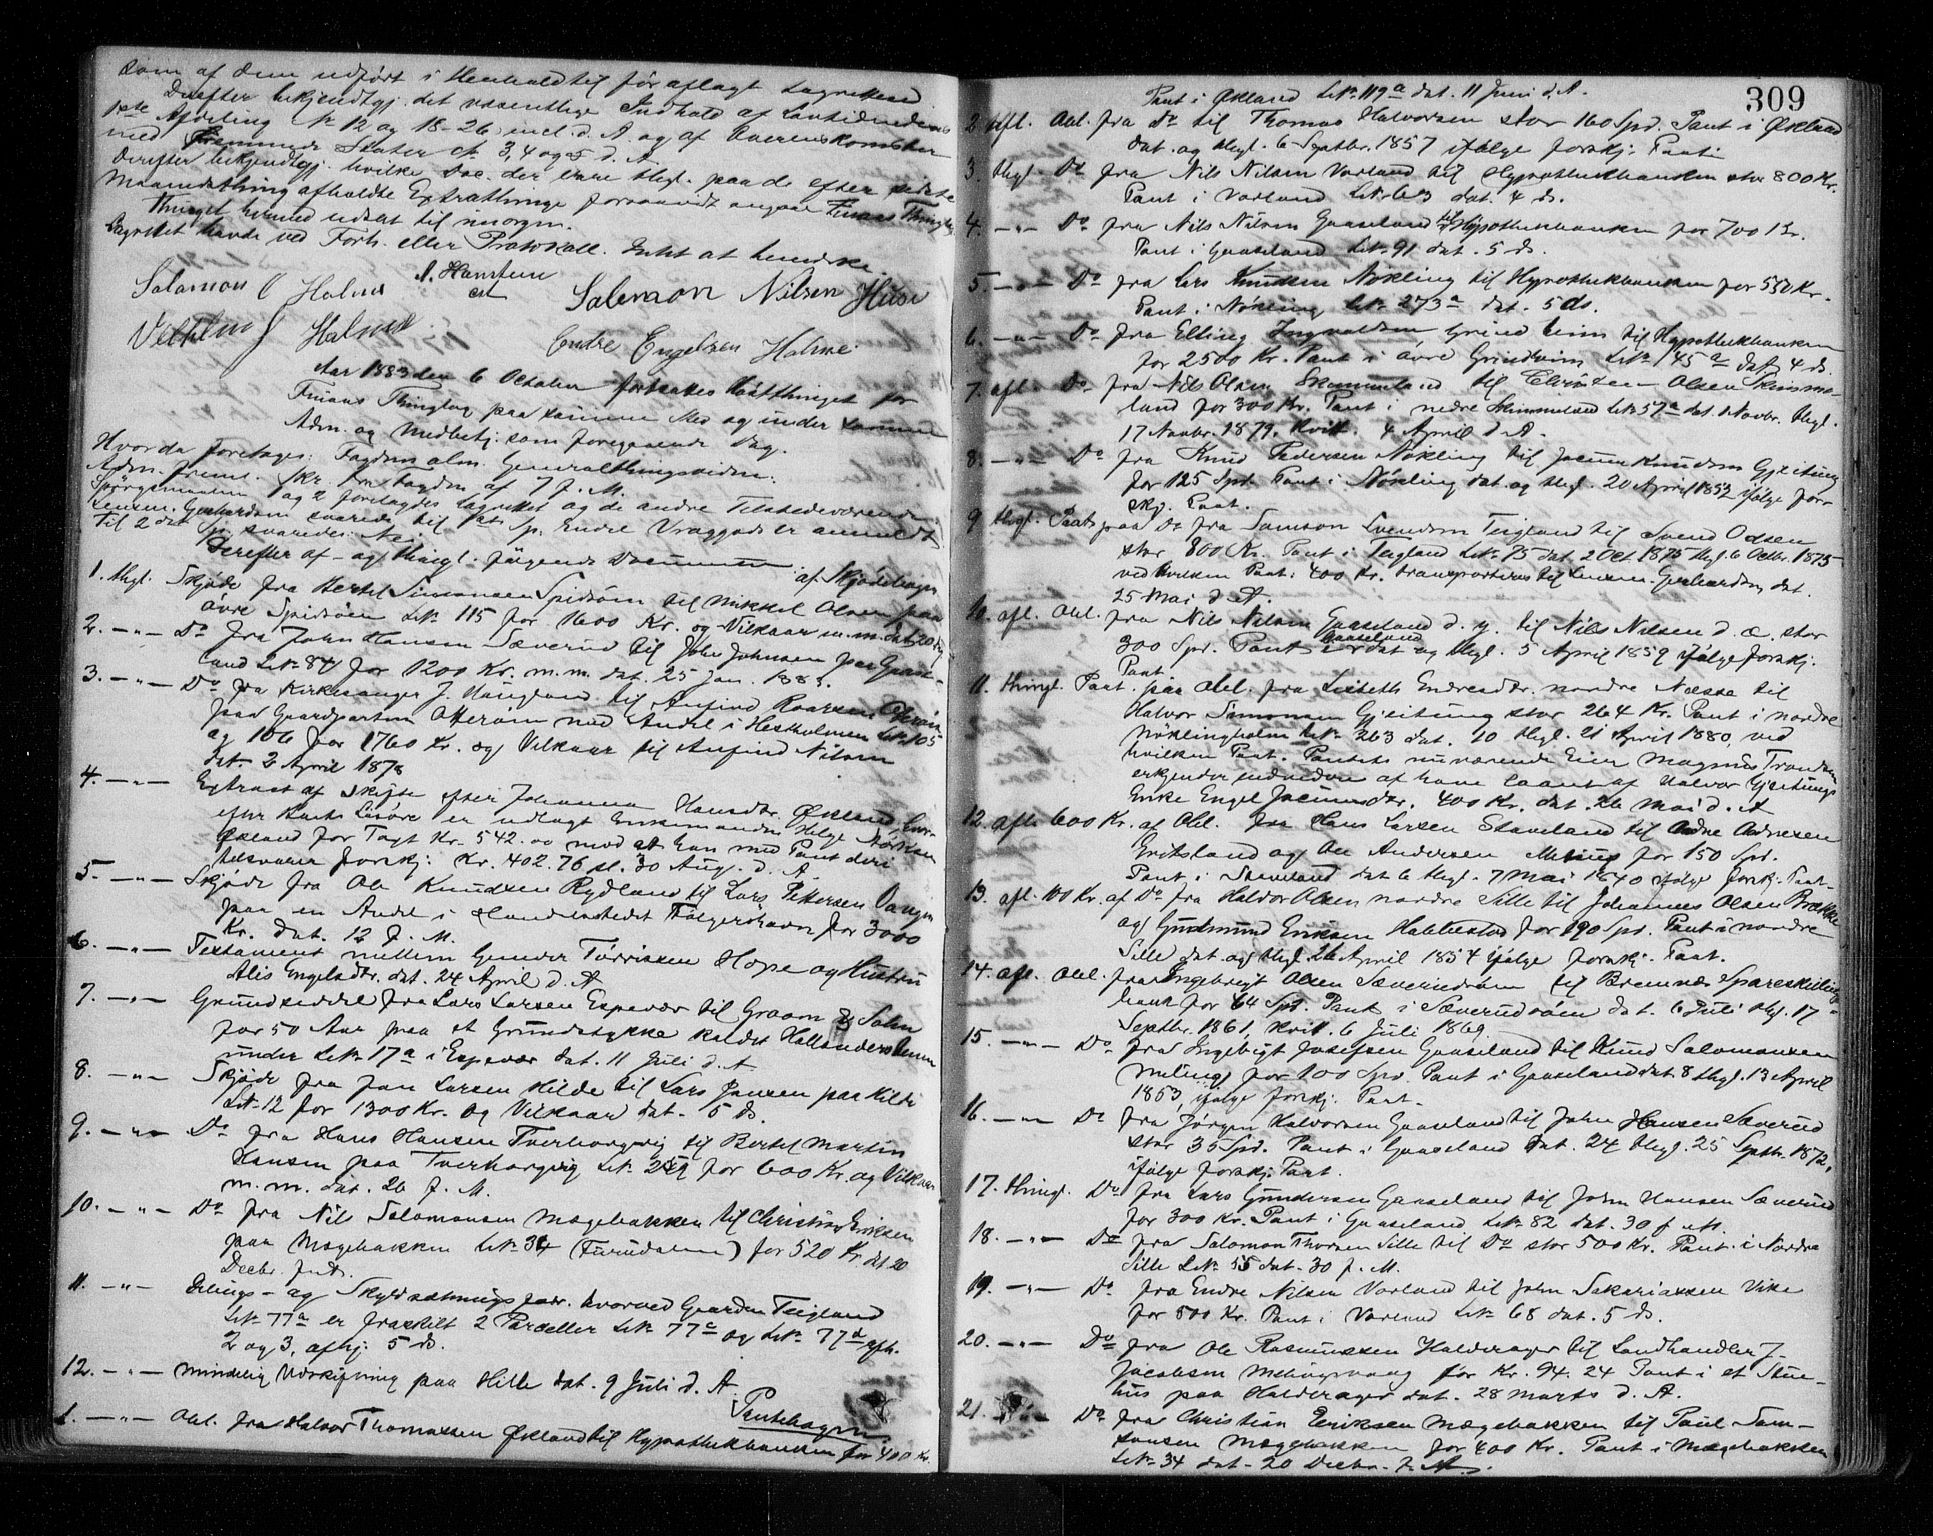 som af dem udført i Henhold til før aflagt Lagrettesed.
Derefter bekjendtgj. det væsentlige Indhold af Lovtidendens
1ste Afdeling № 12 og 18-26 incl. d. A. og af Overenskomster
med fremmede Stater № 3, 4 og 5 d. A.
Derefter bekjendtgj. hvilke Doc. der vare thgl. paa de efter sidste
Maanedsthing afholdte Extrathinge forsaavidt angaar Finaas Thinglag
Thinget hermed udsat til imorgen.
Lagrettet havde ved Forh. eller Protokoll. Intet at bemærke.
Salomon O Holme
Salomon Nilsen Huse
Endre Engelsen Holme
Aar 1883 den 6 Octaber fortsattes Høstthinget for
Finaas Thinglag paa samme Sted og under samme
Adm. og Medbetj. som foregaaende Dag.
Hvorda foretages: Fogdens alm. Generalthingsvidne.
Adm. freml. Skr. fra Fogden af 7 f. M.
Spørgsmaalene 1 og 2 forelagdes Lagrettet og de andre Tilstedeværende.
Lensm. Gerhardsen svarede til 1ste Sp. Endre Vraggods er anmeldt
Til 2det Sp. svaredes Nei.
Derefter af- og thingl. følgende Documenter: af Skjødebogen
1. thgl. Skjøde fra Hertel Simonsen Spidsøen til Mikkel Olsen paa
øvre Spidsøen L№ 115 for 1600 Kr. og Vilkaar m. m. dat. 20
2. —"— Do fra John Hansen Sæverud til John Johnsen paa Gaase-
land L№ 84 for 1200 Kr. m. m. dat. 25 Jan. 1883.
3. —"— Do fra Kirkesanger J. Haugland til Anfind Roarsen Otterøen
paa Gaardparten Otterøen med Andel i Hestholmen L№ 105
og 106 for 1760 Kr. og Vilkaar til Anfind Nilsen
dat. 2 April 1878
4. —"— Extract af Skifte efter Johanna Hansdtr. Økland,
efter hvilket Løsøre er udlagt Enkemanden Helge
Økland for Taxt Kr. 542.00 mod at han med Pant deri
tilsvarer forskj. Kr. 402.76 sl. 30 Aug. d. A.
5. —"— Skjøde fra Ole Knudsen Rydland til Lars Pettersen Vangen
paa en Andel i Handelsstedet Folgerøhavn for 3000
Kr. dat. 12 f. M.
6. —"— Testament mellem Gunder Tørrissen Hope og Hustru
Alis Engelsdtr. dat. 24 April d. A
7. —"— Grundseddel fra Lars Larsen Espevær til Graam & Søhn
for 50 Aar paa et Grundstykke kaldet Hollænderhavn
under L№ 17a i Espevær dat. 11 Juli d. A
8. —"— Skjøde fra Jan Larsen Kilde til Lars Jansen paa Kilde
L№ 12 for 1300 Kr. og Vilkaar dat. 5 ds.
9. —"— Do fra Hans Hansen Tverborgvig til Bertel Martin
Hansen paa Tverborgvig L№ 249 for 600 Kr. og Vilkaar
m. m. dat. 26 f. M.
10. —"— Do fra Nils Salomonsen Mogebakken til Christian Eriksen
paa Mogebakken L№ 34 (Furudalen) for 520 Kr. dat 20
Decbr. f. A.
11. —"— Delings- og Skyldsætningsforr. hvorved Gaarden Teigland
L№ 77a er fraskilt 2 Parceller L№ 77c og L№ 77d
2 og 3, afhj. 5 ds.
12. —"— Mindelig Udskiftning paa Hille dat. 9 Juli d. A.
Pantebogen
1. —"— Obl. fra Halvor Thomassen Økland til Hypothekbanken for 400 Kr.
309
Pant i Økland L№ 119a dat. 11 Juni d. A.
2 afl. Obl. fra Do til Thomas Halvorsen stor 160 Spd. Pant i Økland
dat. og thgl. 6 Septbr. 1857 ifølge forskj. Pant.
3. thgl. Do fra Nils Nilsen Vorland til Hypothekbanken stor 800 Kr.
Pant i Vorland L№ 63 dat. 4 ds.
4. —"— Do fra Nils Nilsen Gaaseland til Hypothekbanken for 700 Kr.
Pant i Gaaseland L№ 91 dat. 5 ds.
5. —"— Do fra Lars Knudsen Nøkling til Hypothekbanken for 550 Kr.
Pant i Nøkling L№ 273a dat. 5 ds.
6. —"— Do fra Elling Ingvaldsen Grindeim til Hypothekbanken
for 2500 Kr. Pant i øvre Grindheim L№ 145a dat. 4 ds.
7. afl. Do fra Nils Olsen Skimmeland til Christen Olsen Skimme-
land for 300 Kr. Pant i nedre Skimmeland L№ 57a dat. 1 Novbr. thgl.
17 Novbr. 1879. Kvitt. 4 April d. A.
8. —"— Do fra Knud Pedersen Nøkling til Jacum Knudsen Gjeitung
for 125 Spd. Pant i Nøkling dat. og thgl. 20 April 1853 ifølge for-
skj. Pant.
9 thgl. Paategn. paa Do fra Samson Svendsen Teigland til Svend Olsen
stor 800 Kr. Pant i Teigland L№ 75 dat. 2 Oct 1875 thgl. 6 Octbr. 1875
ved hvilken Paat. 400 Kr. transporteres til Lensm. Gerhardsen dat.
25 Mai d. A.
10. afl. Obl. fra Nils Nilsen Gaaseland d. y. til Nils Nilsen d. æ. stor
300 Spd. Pant i Gaaseland dat og thgl. 5 April 1859 ifølge forskj.
Pant.
11. thingl. Paat. paa Obl. fra Lisbeth Endresdtr. nordre Næsse til
Halvor Simonsen Gjeitung stor 264 Kr. Pant i nordre
Nøklingholm L№ 263 dat. 10 thgl. 21 April 1880, ved
hvilken Paat. Pantets nuværende Eier Magnus Trondsen
erkjender endvidere at have laant af Halvor Gjeitungs
Enke Engel Jacumsdtr. 400 Kr. dat. 26 Mai d. A
12. afl. 600 Kr. af Obl. fra Hans Larsen Stavland til Endre Andresen
Eritsland og Ole Andersen Meling for 150 Spd.
Pant i Stavland dat 6 thgl. 7 Mai 1840 ifølge forskj. Pant.
13. afl. 100 Kr. af Do fra Halvor Olsen nordre Sille til Johannes Olsen Brække
og Gudmund Eriksen Habbestad for 190 Spd. Pant i nordre
Sille dat. og thgl. 26 April 1854 ifølge forskj. Pant.
14. afl. Obl. fra Ingebrigt Olsen Sæverudøen til Bremnæs Spareskillings-
bank for 64 Spd. Pant i Sæverudøen dat. 6 Juli thgl. 17
Septbr. 1861, Kvitt. 6 Juli 1869.
15. —"— Do. fra Ingebrigt Josefsen Gaaseland til Knud Salomonsen
Meling for 100 Spd. Pant i Gaaseland dat 8 thgl. 13 April
1853, ifølge forskj. Pant.
16. —"— Do fra Jørgen Halvorsen Gaaseland til John Hansen Sæverud
stor 35 Spd. Pant i Gaaseland dat. 24 thgl. 25 Septbr. 1872,
ifølge forskj. Pant.
17. thingl. Do fra Lars Gundersen Gaaseland til John Hansen Sæverud
for 300 Kr. Pant i Gaaseland L№ 82 dat. 30 f. M.
18. —"— Do fra Salomon Thorsen Sille til Do stor 500 Kr. Pant i Nordre
Sille L№ 55 dat. 30 f. M.
19. —"— Do. fra Endre Nilsen Vorland til John Sakariassen Vike
for 800 Kr. Pant i Vorland L№ 68 dat. 5 ds.
20. —"— Do fra Ole Rasmussen Halderager til Landhandler J.
Jacobsen Melingsvaag for Kr. 94.24 Pant i et Stue-
hus paa Halderager dat. 28 Marts d. A.
21. —"— Do fra Christian Eriksen Mogebakken til Paul Sam-
sonsen Mogebakken for 400 Kr. Pant i Mogebakken
L№ 34 dat. 20 Decbr. f. A.